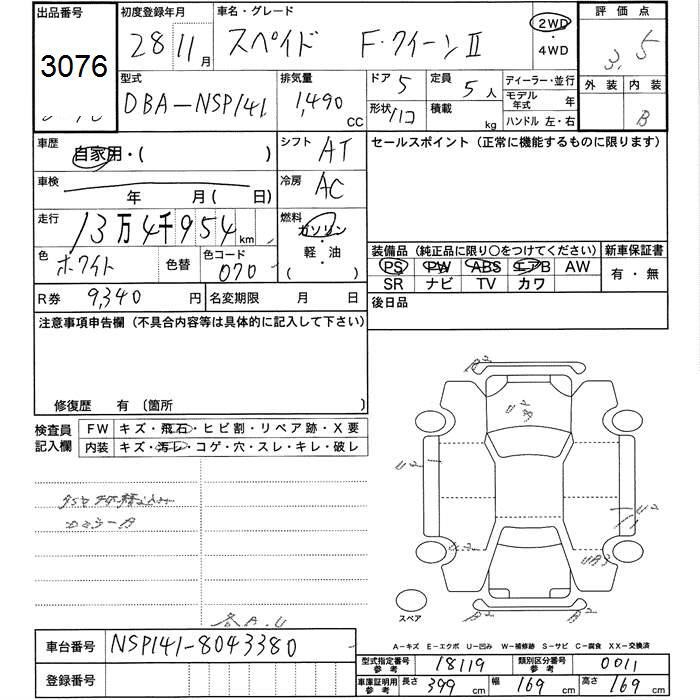 出品番号 初度登録年月 車名・グレード 評価点
3076 28 11月 スペイド F・クイーンⅡ 2WD・4WD 3.5
型式 排気量 ドア 5 定員 5人 ディーラー・並行 外装 内装
DBA-NSP141 1,490 CC 形状 ハコ 積載 kg モデル年式 年 B
ハンドル 左・右
車歴 自家用・( ) シフト AT セールスポイント (正常に機能するものに限ります)
車検 年 月( 日) 冷房 AC
走行 13万4千954km 燃料 ガソリン・軽・油 ( )
色 ホワイト 色替 色コード 070
装備品 (純正品に限り○をつけてください) 新車保証書
PS PW ABS エアB AW 有・無
SR ナビ TV カワ
R券 9,340 円 名変期限 月 日 後日品
注意事項申告欄 (不具合内容等は具体的に記入して下さい)
修復歴 有 (箇所 )
検査員記入欄 FW キズ・飛石・ヒビ割・リペア跡・X要
内装 キズ・汚レ・コゲ・穴・スレ・キレ・破レ
各A.U
スペア
A-キズ E-エクボ U-凹み W-補修跡 S-サビ C-腐食 XX-交換済
車台番号 NSP141-8043380
型式指定番号参考 18119 類別区分番号参考 0011
登録番号 車庫証明用参考 長さ 399 cm 幅 169 cm 高さ 169 cm